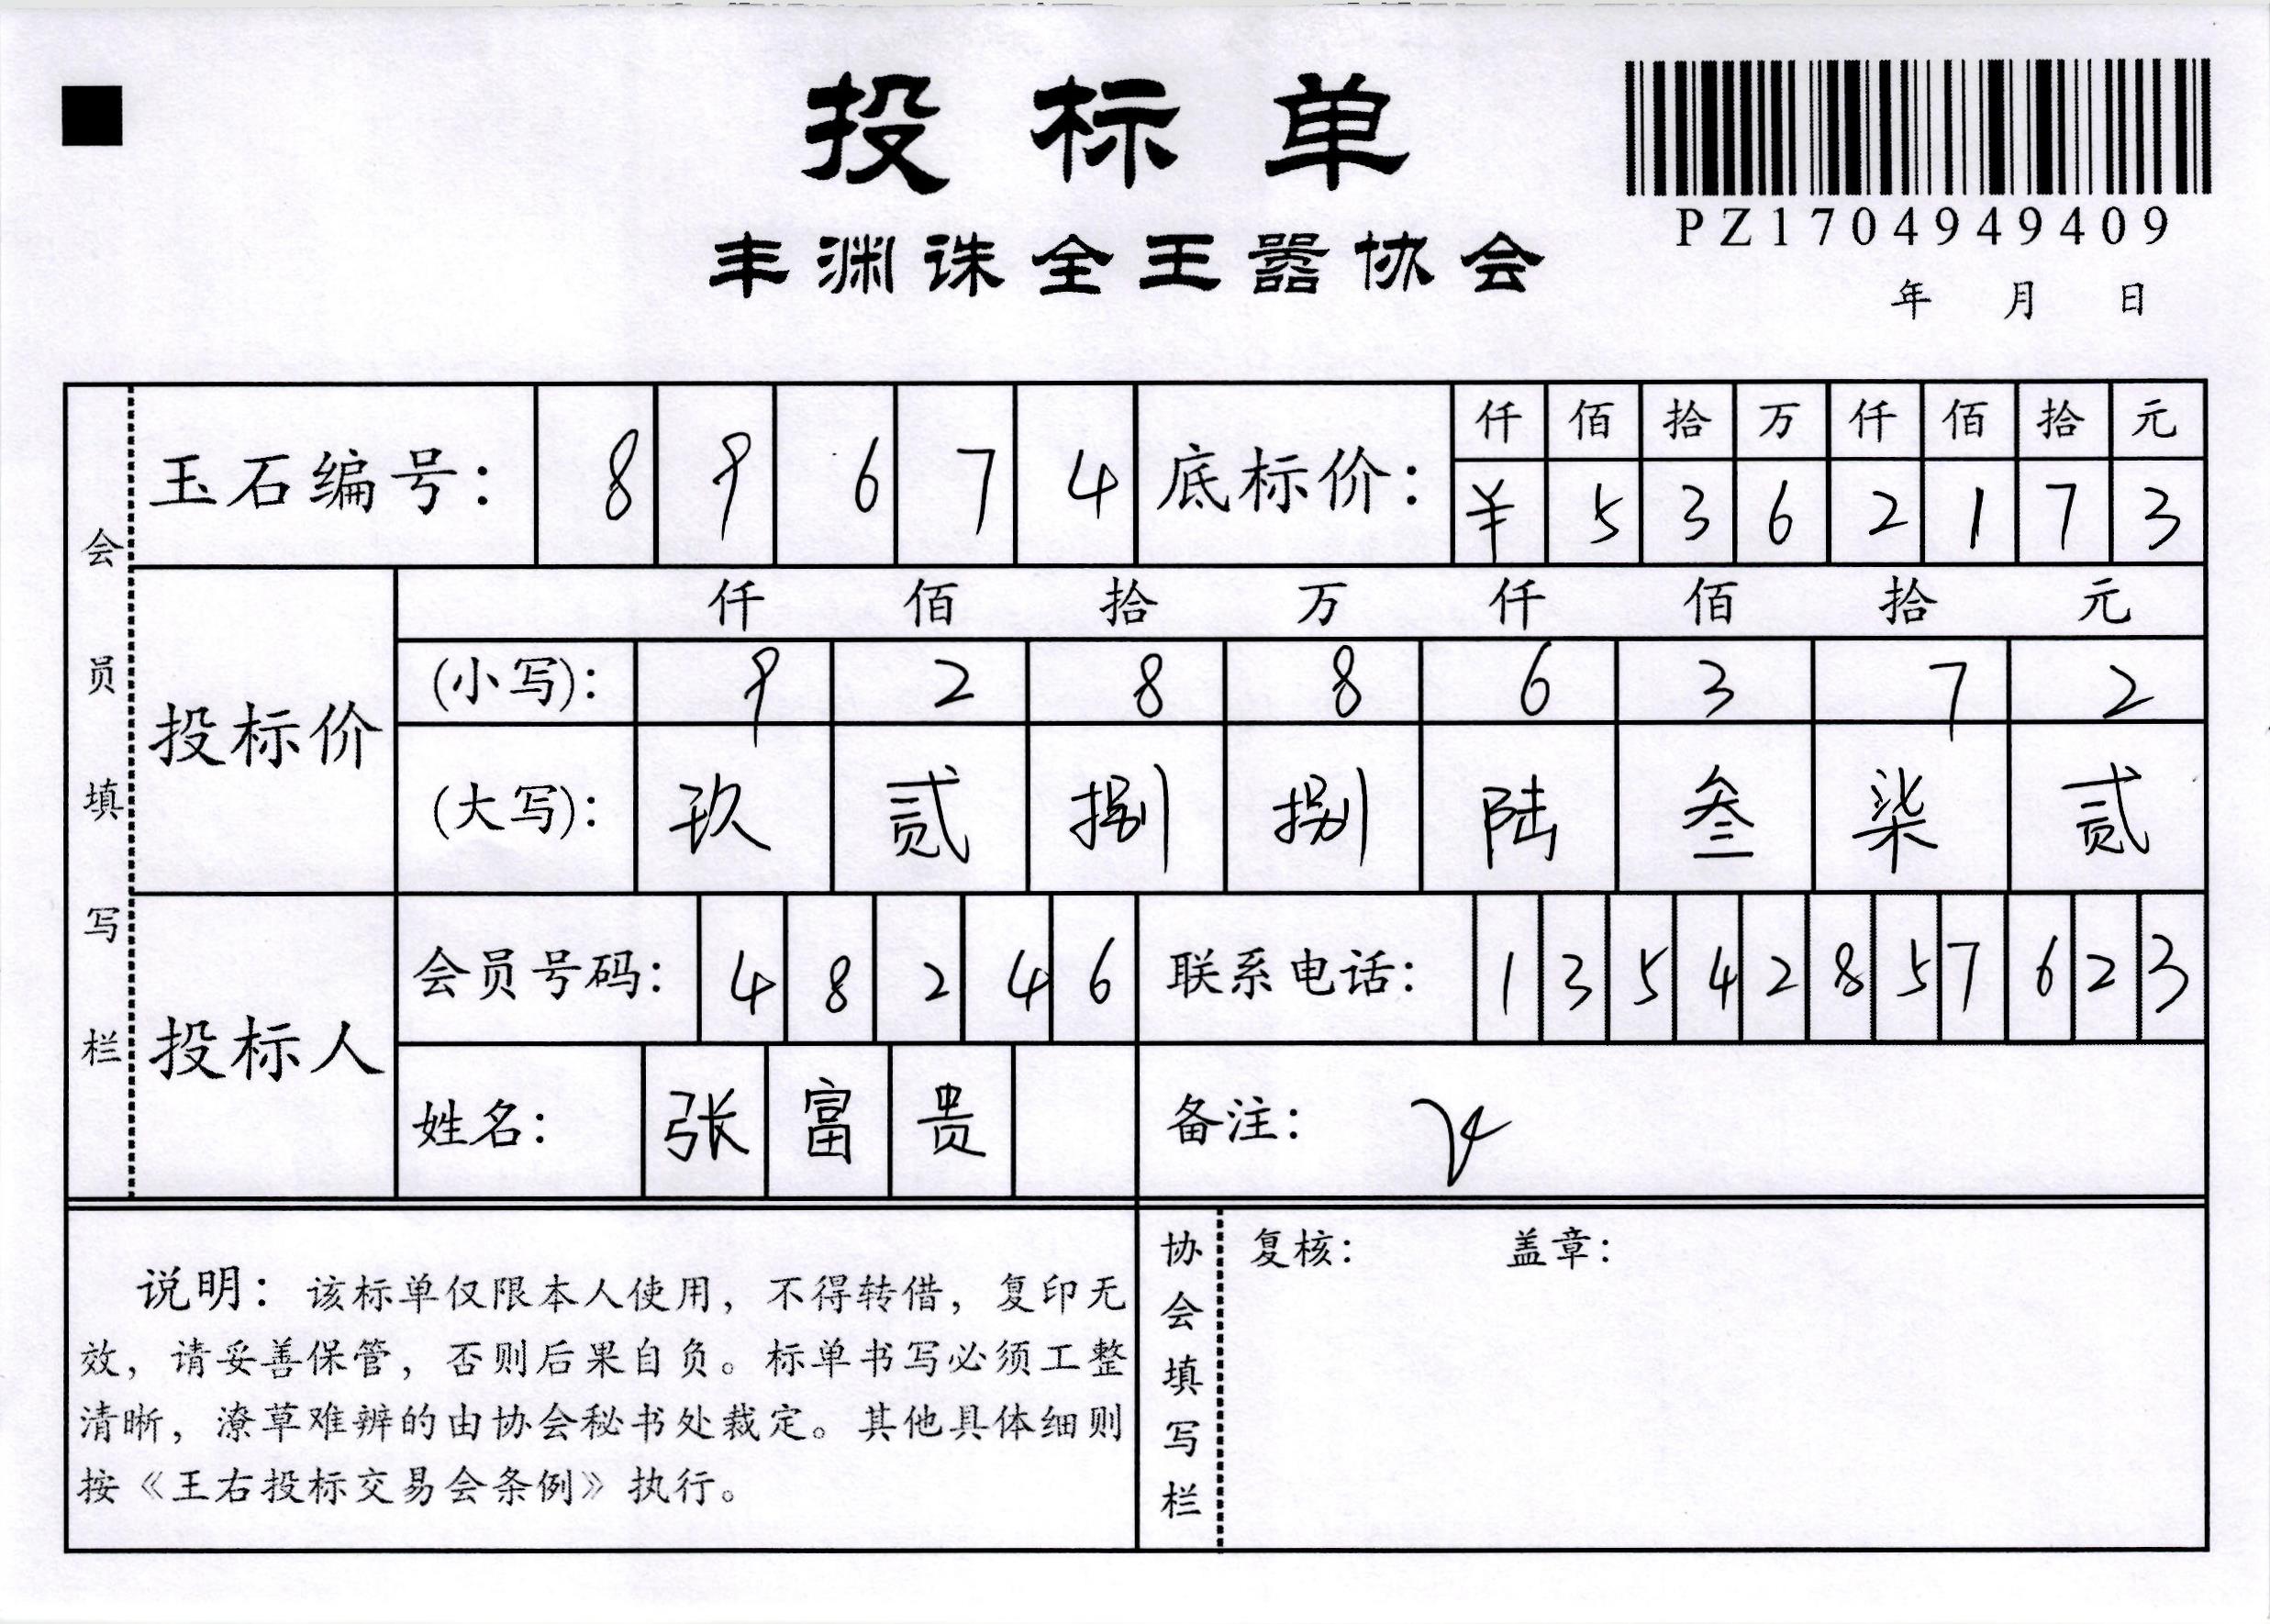 投标单
PZ1704949409
丰渊诛全王嚣协会
年 月 日
会员填写栏
玉石编号： 8 9 6 7 4
底标价： 仟 佰 拾 万 仟 佰 拾 元
¥ 5 3 6 2 1 7 3
投标价
仟 佰 拾 万 仟 佰 拾 元
(小写)： 9 2 8 8 6 3 7 2
(大写)： 玖 贰 捌 捌 陆 叁 柒 贰
投标人
会员号码： 4 8 2 4 6
联系电话： 1 3 5 4 2 8 5 7 6 2 3
姓名： 张 富 贵
备注：
说明：该标单仅限本人使用，不得转借，复印无
效，请妥善保管，否则后果自负。标单书写必须工整
清晰，潦草难辨的由协会秘书处裁定。其他具体细则
按《王右投标交易会条例》执行。
协会填写栏
复核： 盖章：